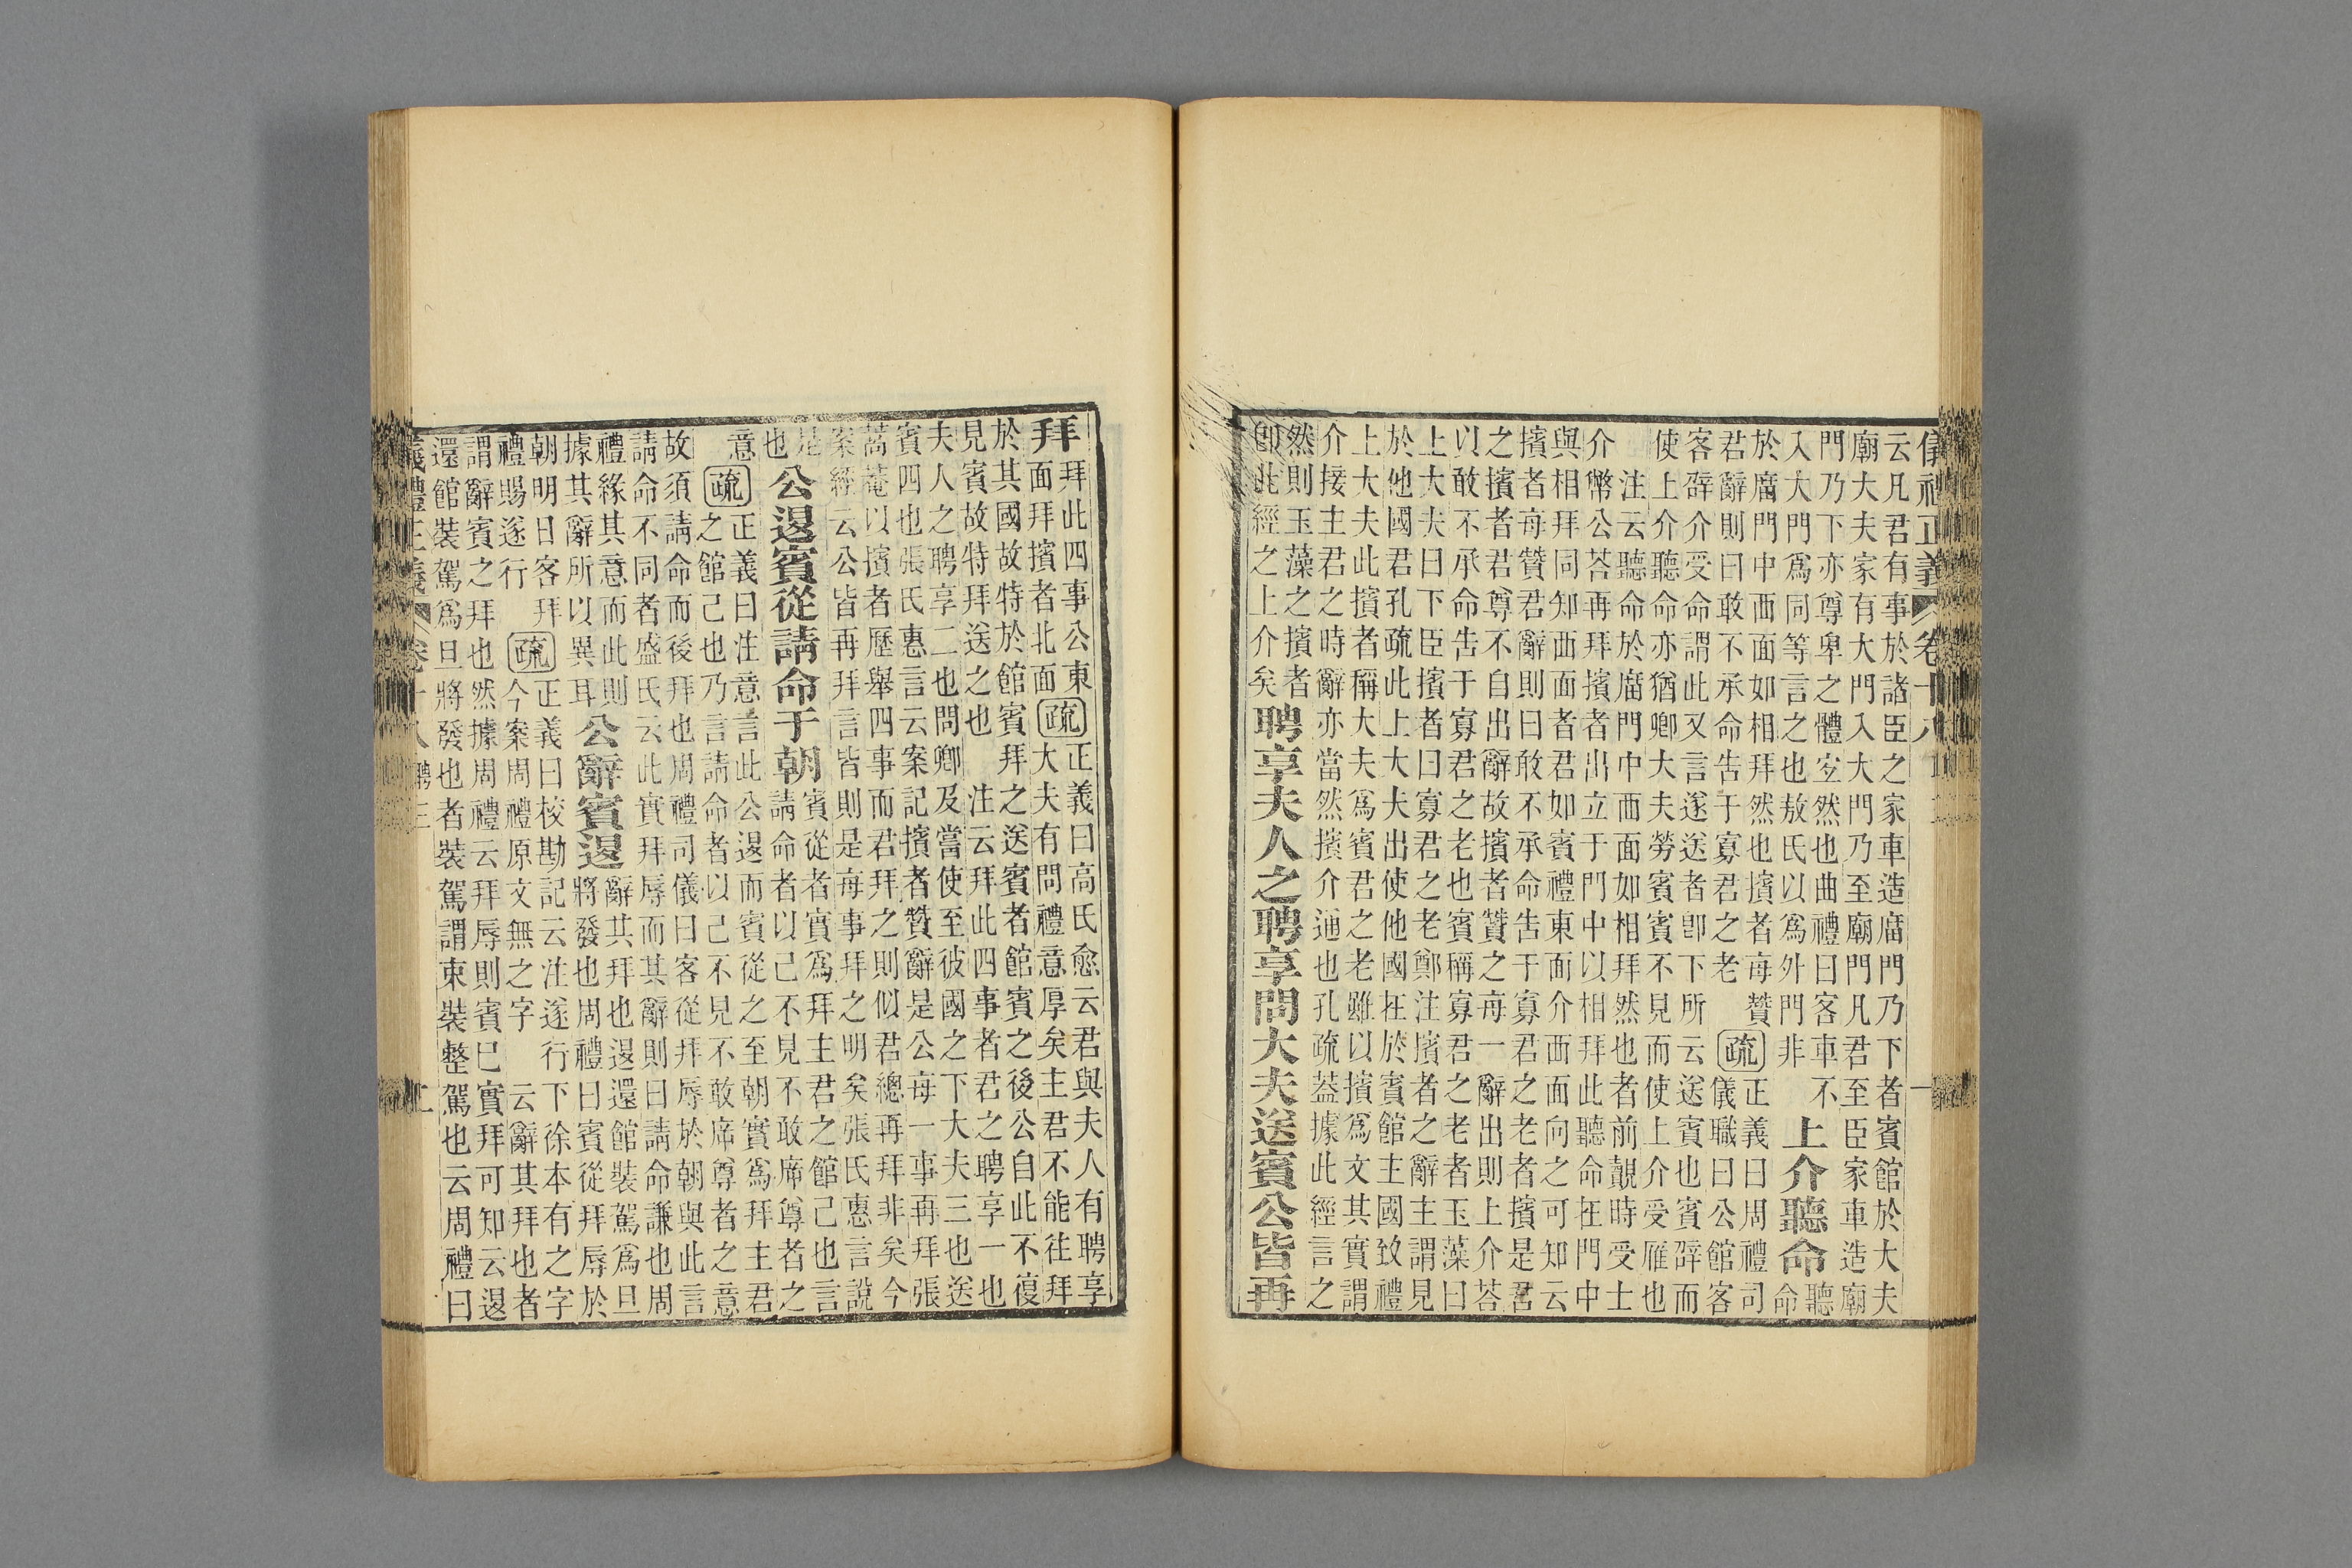 儀禮正義 卷十八
云凡君有事於諸臣之家車造廟門乃下者賓館於大夫
廟大夫家有大門入大門乃至廟門凡君至臣家車造廟
門乃下亦尊卑之體宜然也曲禮曰客車不
入大門爲同等言之也敖氏以爲外門非
上介聽命
聽
命
於廟門中西面如相拜然也擯者每贊
君辭則曰敢不承命告于寡君之老
疏
正義曰周禮司
儀職曰公館客
客辟介受命謂此又言遂送者卽下所云送賓也賓辟而
使上介聽命亦猶卿大夫勞賓賓不見而使上介受雁也
注云聽命於廟門中西面如相拜然也者前覿時受士
介幣公荅再拜擯者出立于門中以相拜此聽命在門中
與相拜同知西面者君如賓禮東面介西面向之可知云
擯者每贊君辭則曰敢不承命告于寡君之老者擯是君
之擯者君尊不自出辭故擯者贊之每一辭出則上介荅
以敢不承命告于寡君之老也賓稱寡君之老者玉藻曰
上大夫曰下臣擯者曰寡君之老鄭注擯者之辭主謂見
於他國君孔疏此上大夫出使他國在於賓館主國致禮
上大夫此擯者稱大夫爲賓君之老雖以擯爲文其實謂
介接主君之時辭亦當然擯介通也孔疏蓋據此經言之
然則玉藻之擯者
卽此經之上介矣
聘享夫人之聘享問大夫送賓公皆再
拜
拜此四事公東
面拜擯者北面
疏
正義曰高氏愈云君與夫人有聘享
大夫有問禮意厚矣主君不能往拜
於其國故特於館賓拜之送賓者館賓之後公自此不復
見賓故特拜送之也 注云拜此四事者君之聘享一也
夫人之聘享二也問卿及當使至彼國之下大夫三也送
賓四也張氏惠言云案記擯者贊辭是公每一事再拜張
蒿菴以擯者歷舉四事而君拜之則似君總再拜非矣今
案經云公皆再拜言皆則是每事拜之明矣張氏惠言說
是
也
公退賓從請命于朝
賓從者實爲拜主君之館己也言
請命者以己不見不敢席尊者之
意
疏
正義曰注意言此公退而賓從之至朝實爲拜主君
之館己也乃言請命者以己不見不敢席尊者之意
故須請命而後拜也周禮司儀曰客從拜辱於朝與此言
請命不同者盛氏云此實拜辱而其辭則曰請命謙也周
禮緣其意而此則
據其辭所以異耳
公辭賓退
辭其拜也退還館裝駕爲旦
將發也周禮曰賓從拜辱於
朝明日客拜
禮賜遂行
疏
正義曰校勘記云注遂行下徐本有之字
今案周禮原文無之字 云辭其拜也者
謂辭賓之拜也然據周禮云拜辱則賓已實拜可知云退
還館裝駕爲旦將發也者裝駕謂束裝整駕也云周禮曰